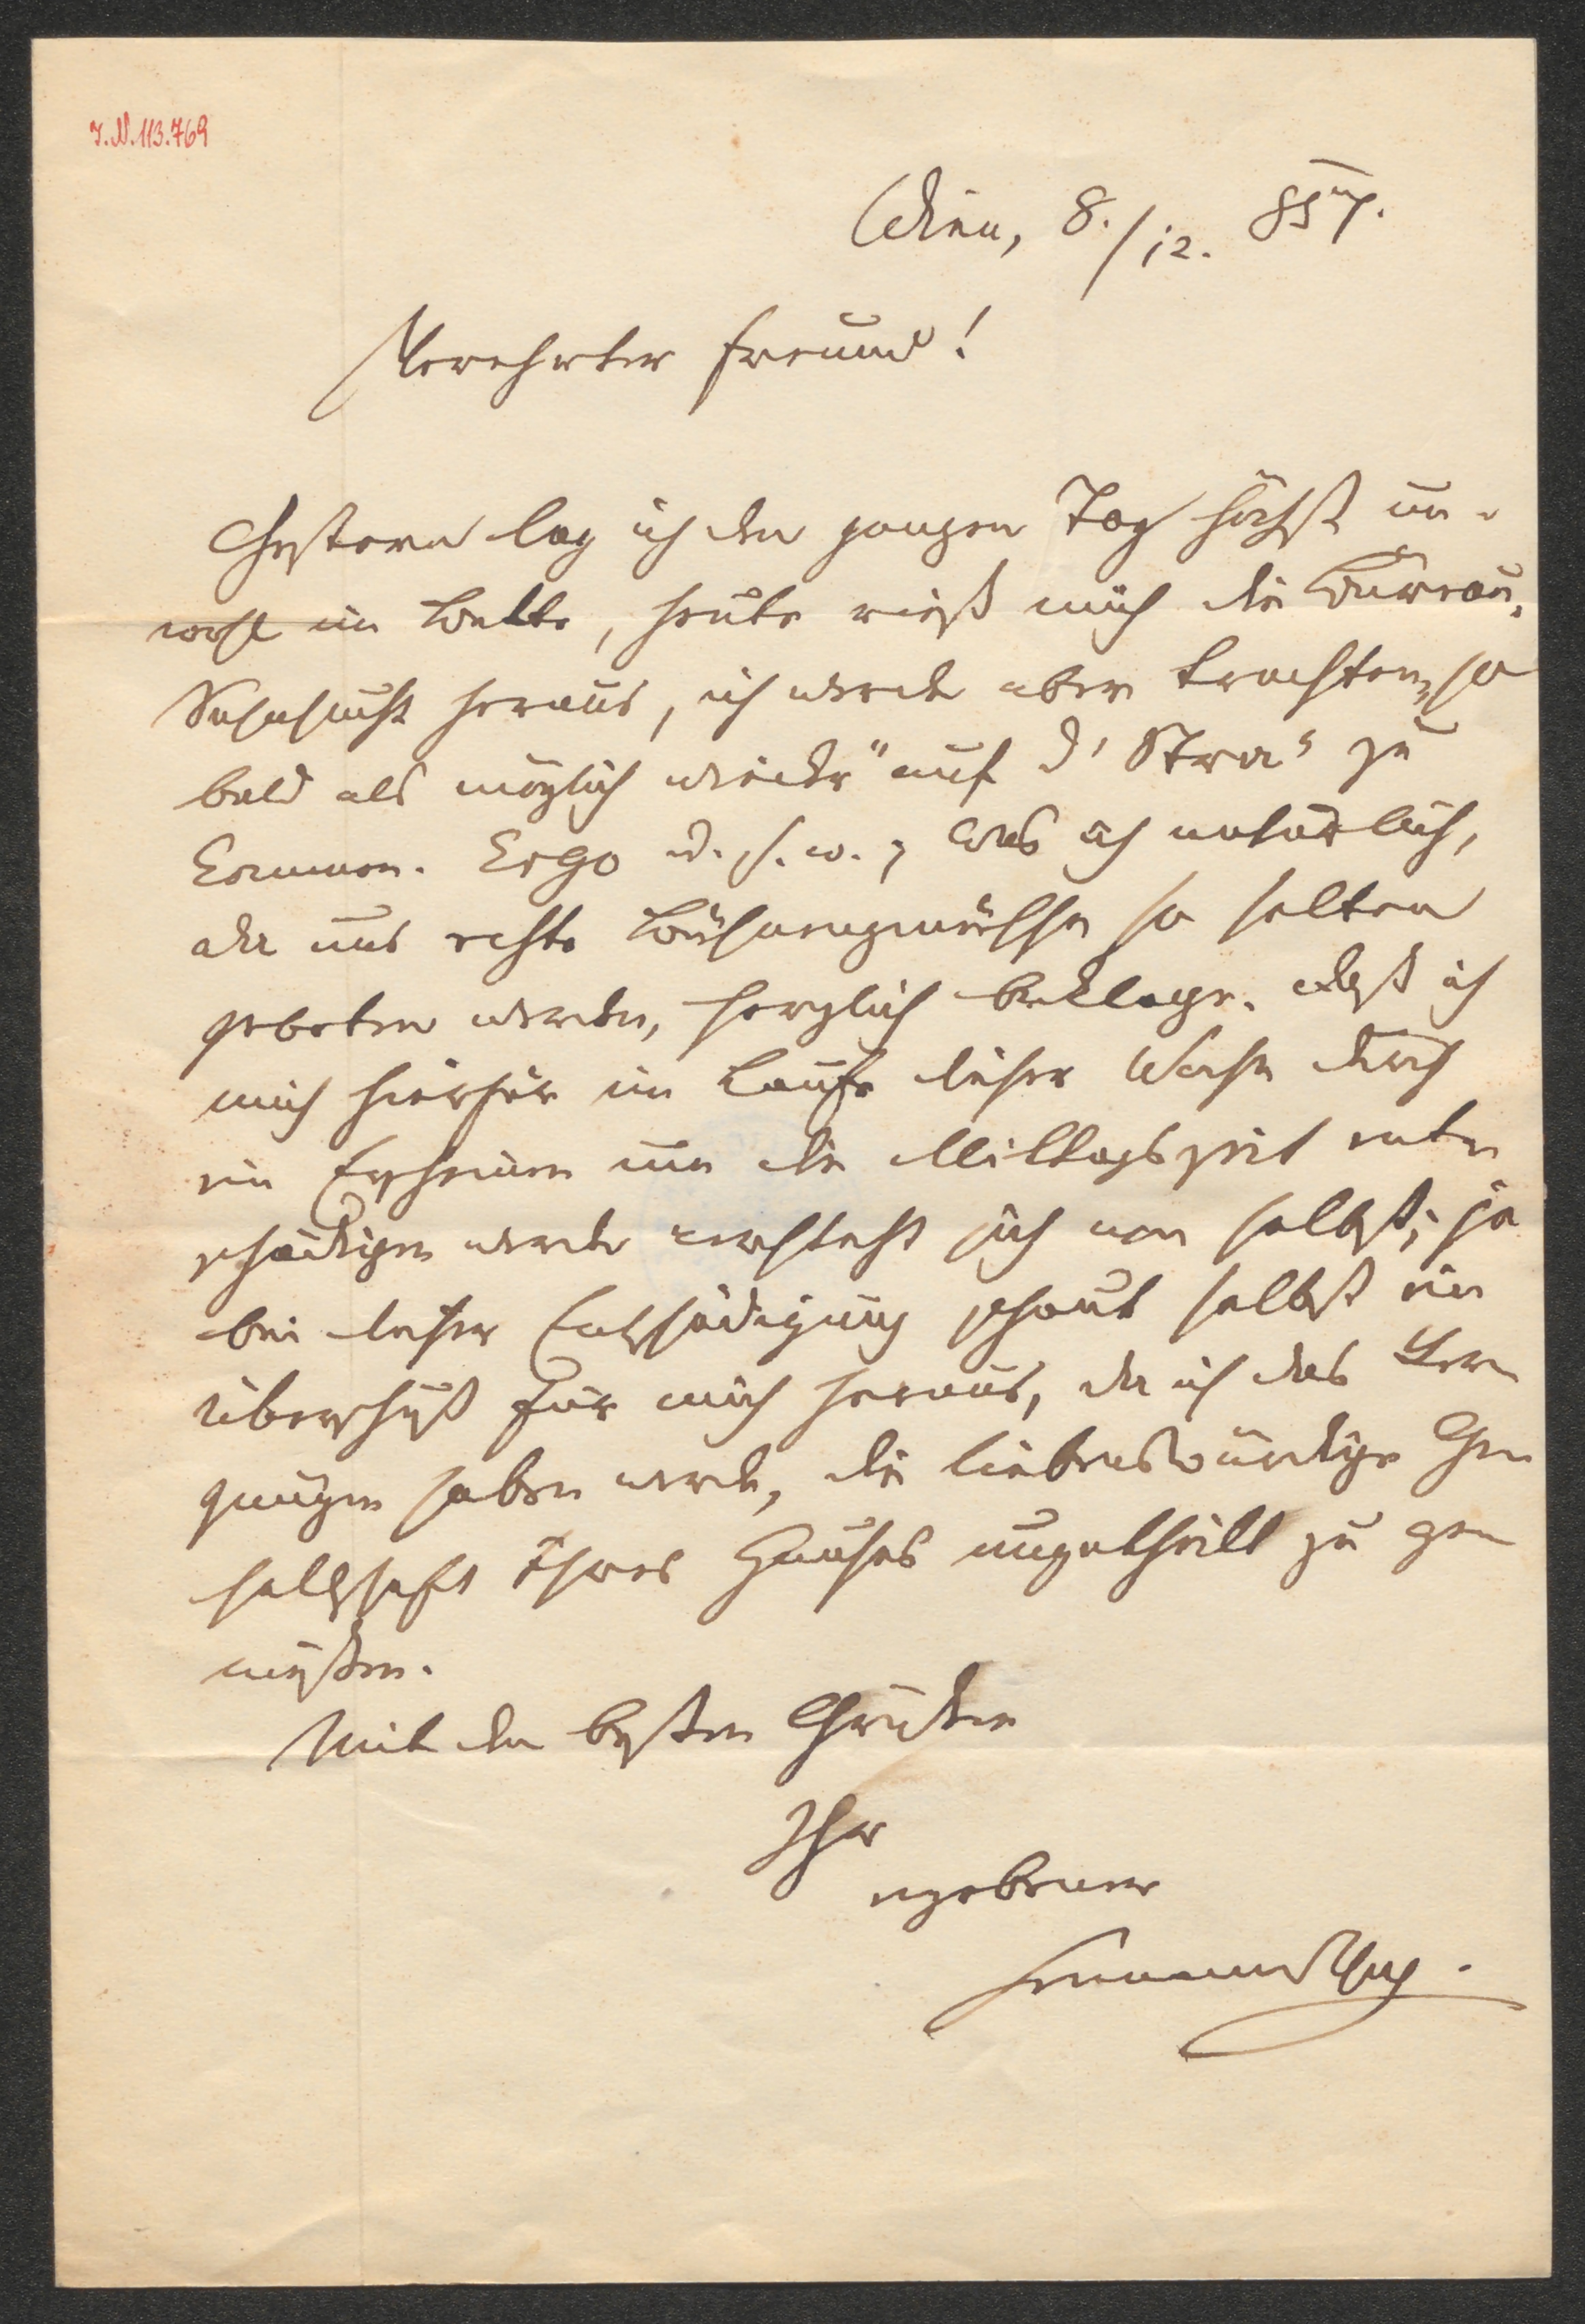 I.N.113.769
Wien, 8./12. 857.
Verehrter Freund!
Gestern lag ich den ganzen Tag höchst un-
wohl im Bette, heute rieß mich die Bureau-
Sehnsucht heraus, ich werde aber trachten, so
bald als möglich wieder "auf d' Stra" zu
kommen. Ergo u. s. w.; was ich natürlich,
da uns echte Bühnengenüsse so selten
geboten werden, herzlich beklage. Daß ich
mich hierfür im Laufe dieser Woche durch
ein Erscheinen um die Mittagszeit ent-
schädigen werde versteht sich von selbst; ja
bei dieser Entschädigung schaut selbst ein
Überschuß für mich heraus, da ich das Ver-
gnügen haben werde, die liebenswürdige Ge-
sellschaft Ihres Hauses ungetheilt zu ge-
nießen.
Mit den besten Grüßen
Ihr
ergebener